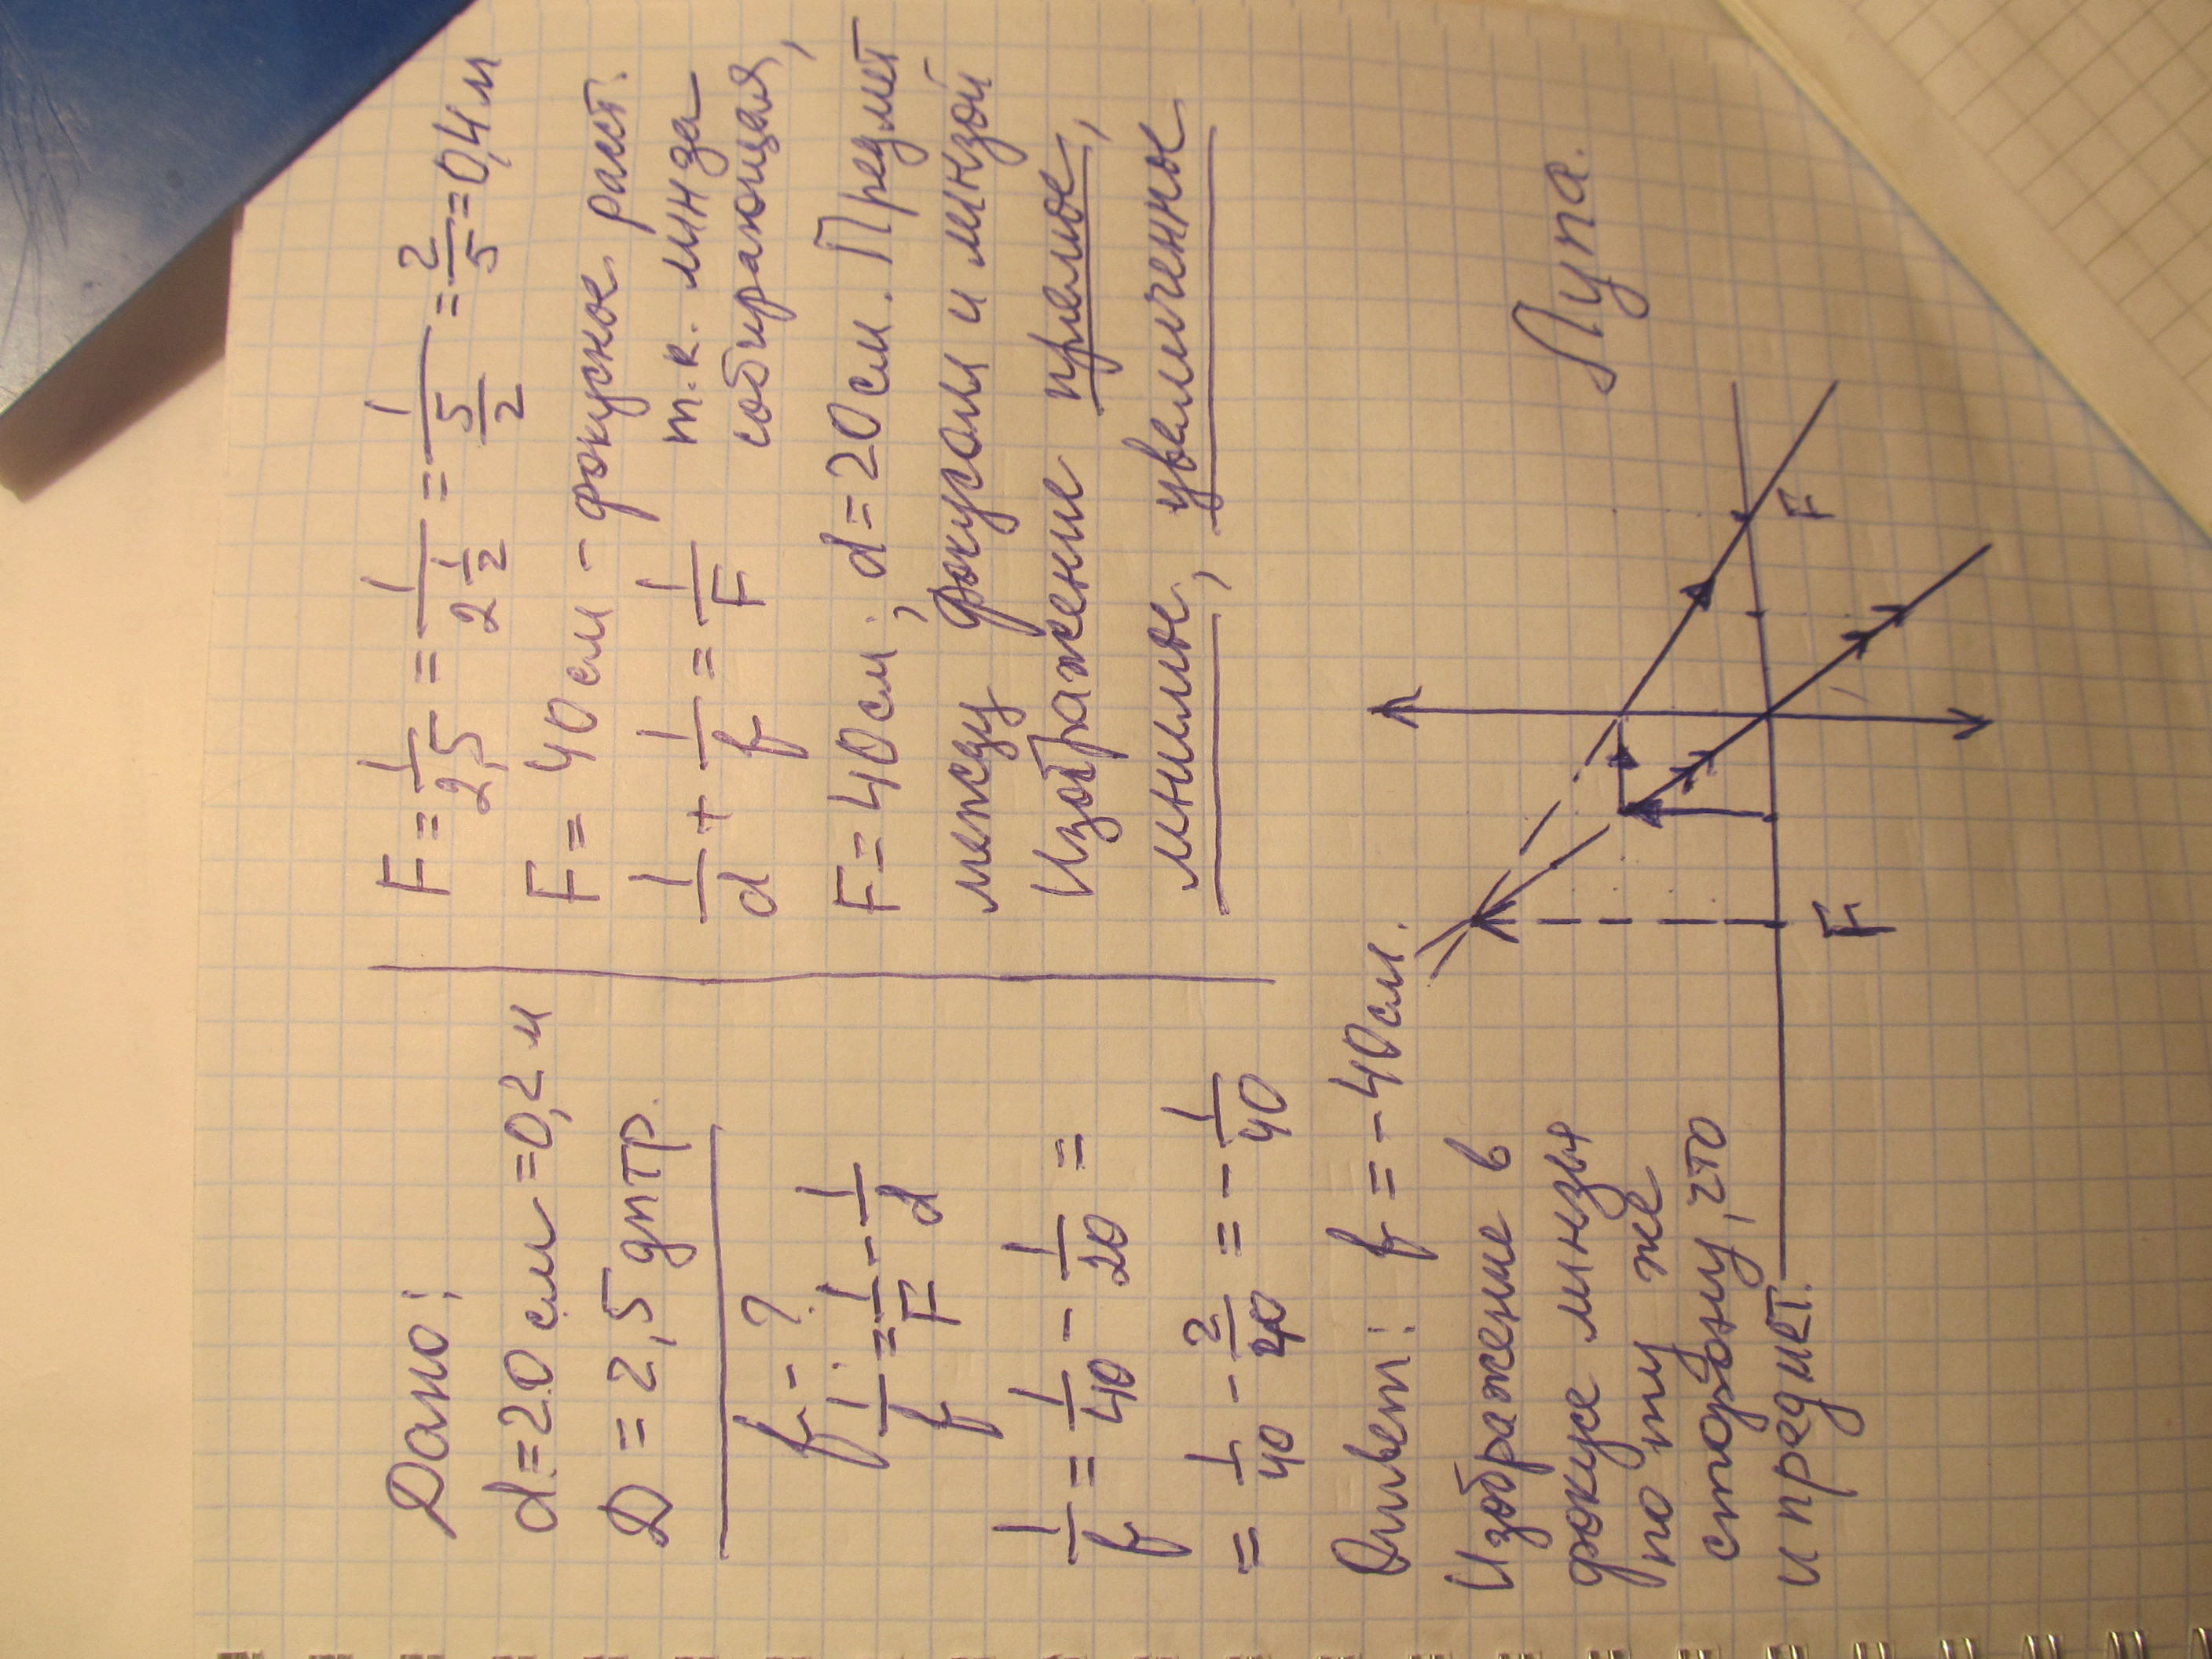 Дано:
d = 20 см = 0,2 м
D = 2,5 дптр.
f - ?
1/f = 1/F - 1/d
1/f = 1/40 - 1/20 =
= 1/40 - 2/40 = - 1/40
Ответ: f = - 40 см.
Изображение в
фокусе линзы
по ту же
сторону, что
и предмет.
F = 1/2,5 = 1/2 1/2 = 1/5/2 = 2/5 = 0,4 м
F = 40 см - фокусное расст.
1/d + 1/f = 1/F т.к. линза
собирающая,
F = 40 см; d = 20 см. Предмет
между фокусом и линзой
Изображение прямое,
мнимое, увеличенное
Лупа.
F
F